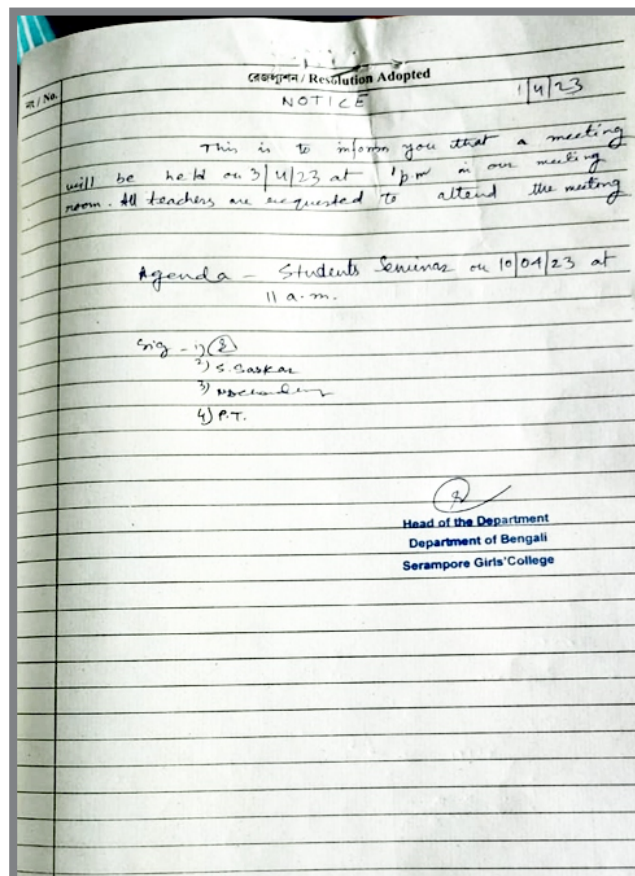 রেজল্যুশন / Resolution Adopted
নং / No.
NOTICE
1/4/23
This is to inform you that a meeting
will be held on 3/4/23 at 1 p.m in our meeting
room. All teachers are requested to attend the meeting
Agenda - Students Seminar on 10/04/23 at
11 a.m.
Sig - 1)
2) S. Sarkar
3)
4) P.T.
Head of the Department
Department of Bengali
Serampore Girls'College